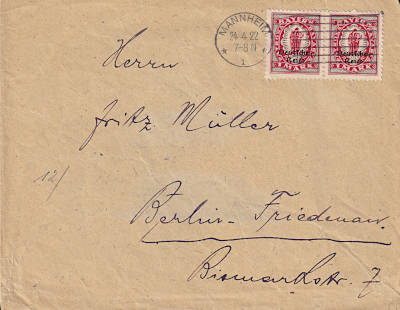 MANNHEIM
24.4.22
7-8 N
1
BAYERN
Deutsches
Reich
1 MARK
BAYERN
Deutsches
Reich
1 MARK
Herrn
Fritz Müller
12/
Berlin-Friedenau
Bismarckstr. 7